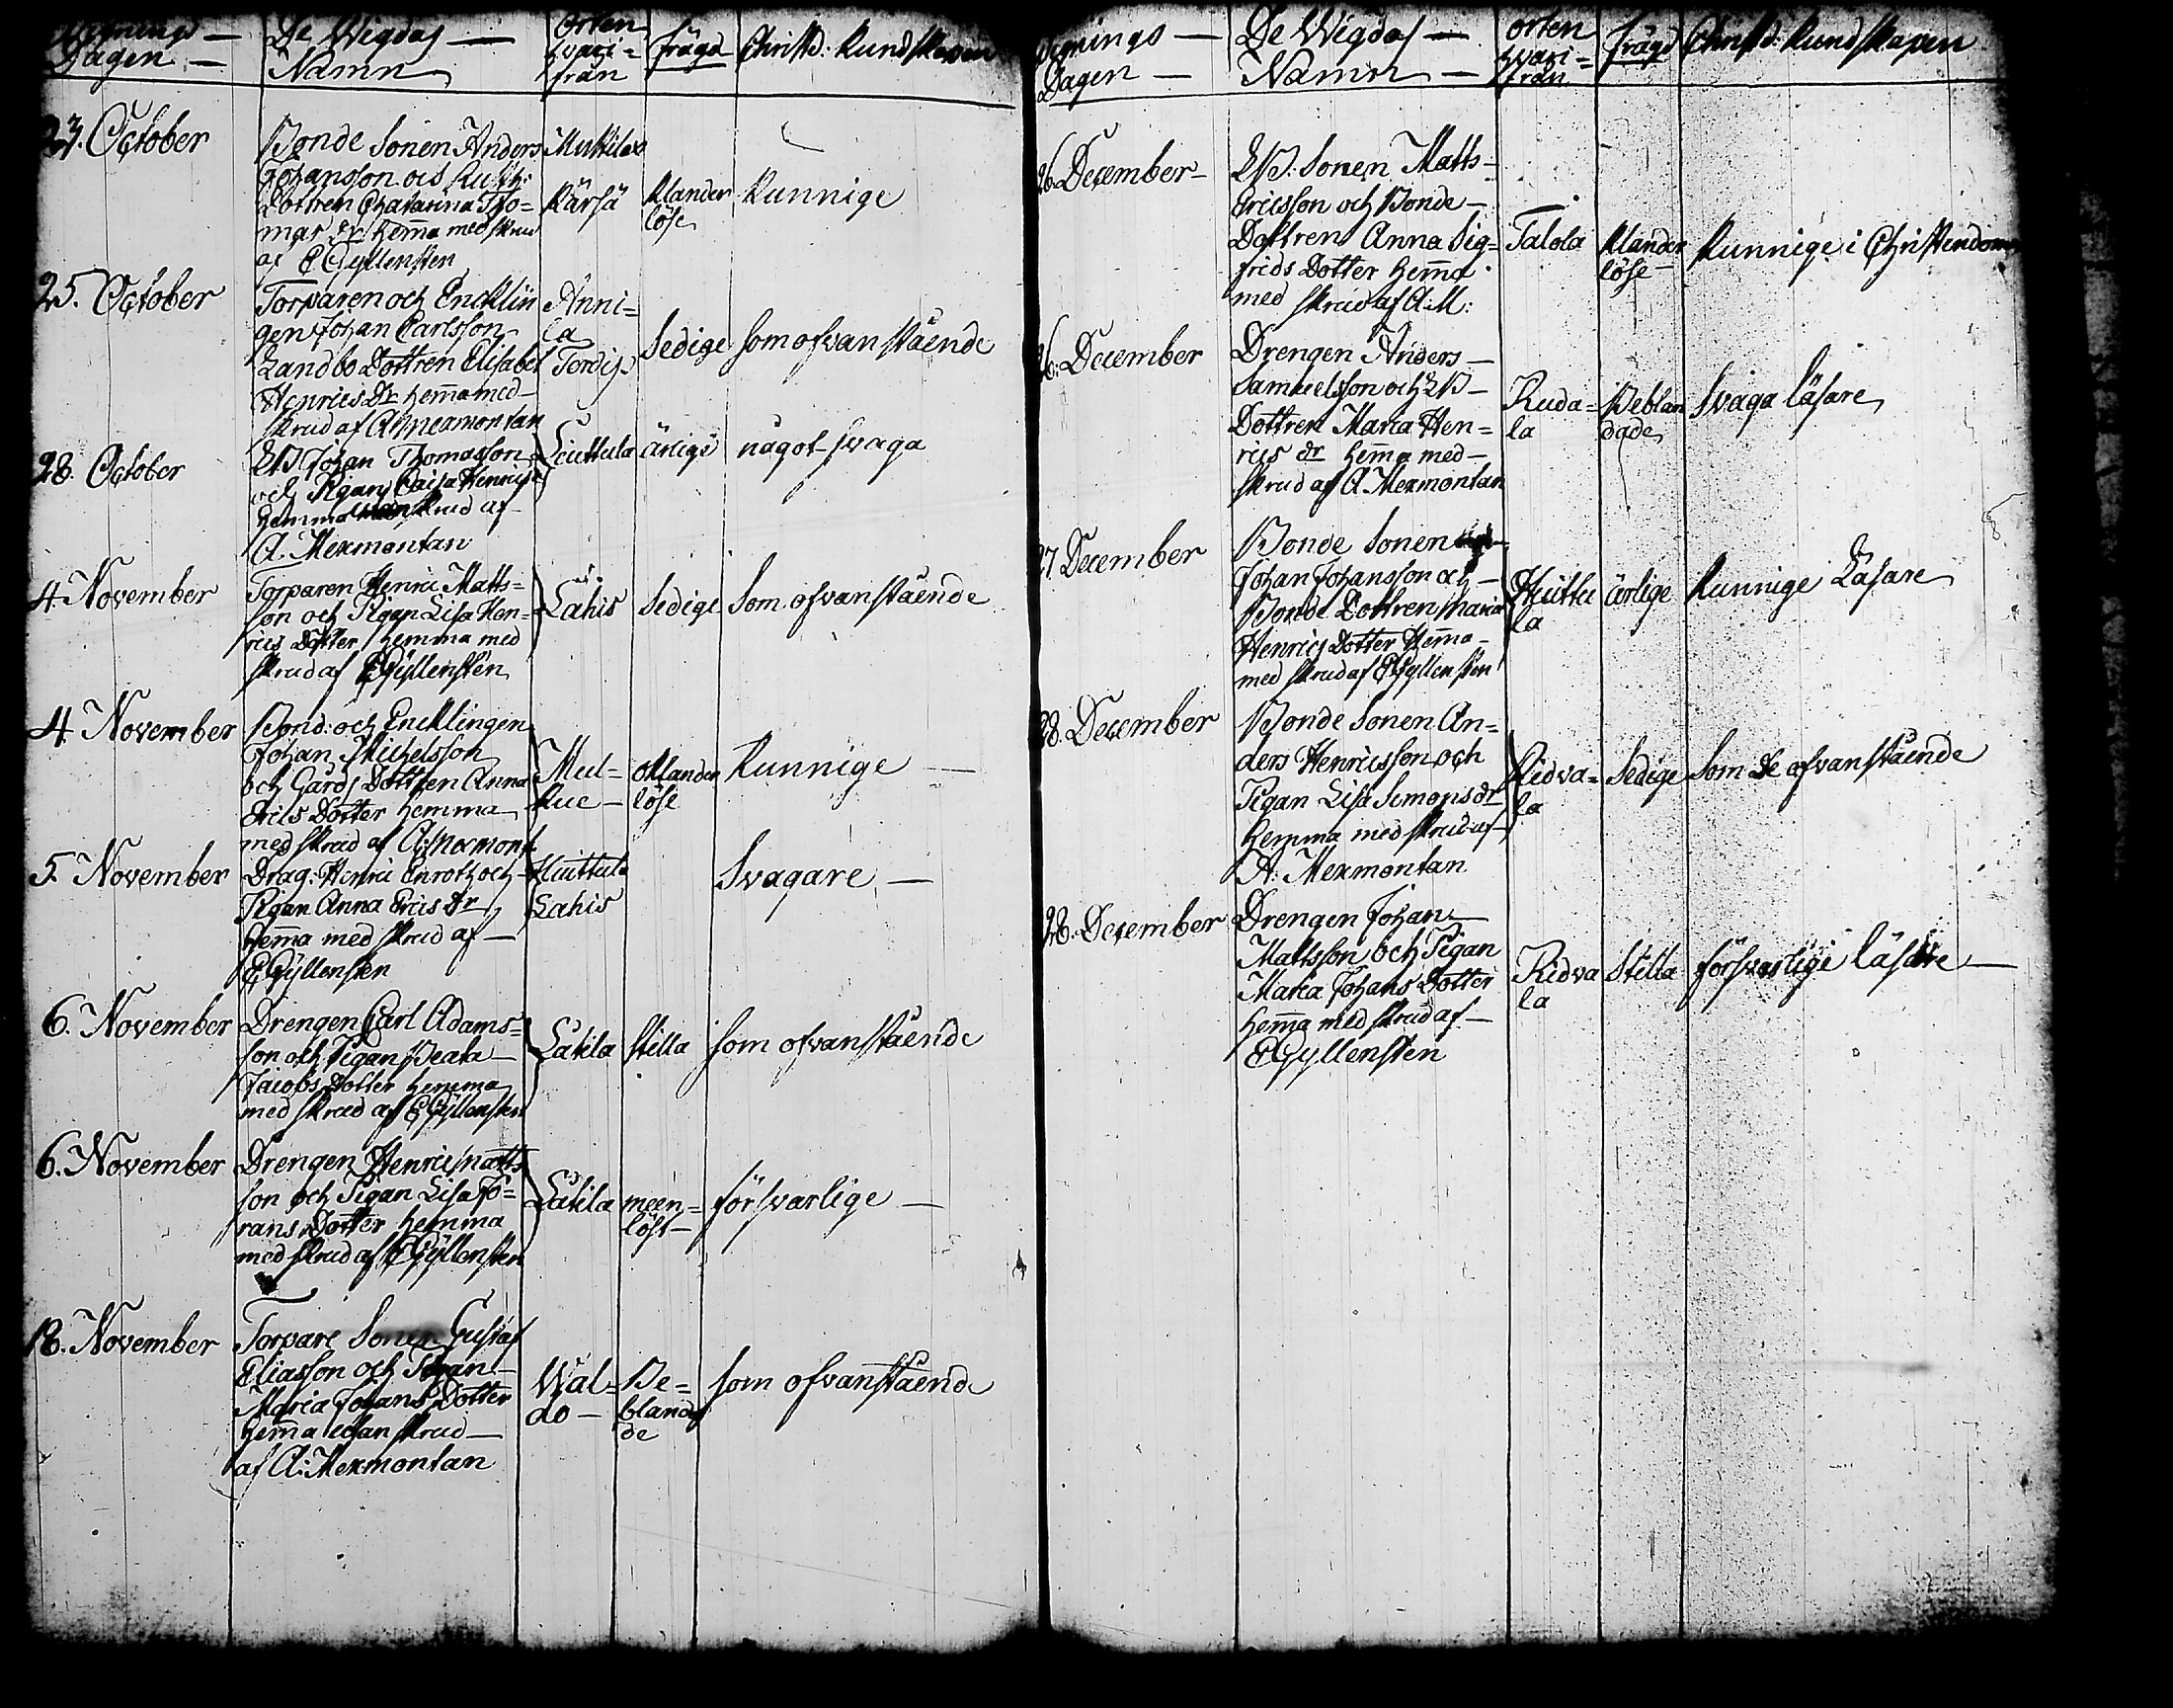 Dagen —
De Wigdas — Namn
Orten hvari= från
frägd
Christd: Kundskapen
23. October
Bonde Sonen Anders
Johansson och
Dottren Catharina Tho=
mas dr hemma med skrud
af E Gyllensten
Kärsä
Klander
löse
Kunnige
25. October
Torparen och Encklin
gen Johan Carlsson
Landbo Dottren Elisabet
Henrics Dr hemma med
skrud af A Mexmontan
Änni=
la
Tordis
Sedige
som ofvanstående
28. October
Johan Thomasson
och Pigan Caisa Henrics
hemma skrud af
A. Mexmontan
Liuttula
ärlige
något svaga
4. November
Torparen Henric Matts=
son och Pigan Lisa Hen=
rics Dotter hemma med
skrud af E Gyllensten
Lahis
Sedige
Som ofvanstående
4. November
Bond: och Encklingen
Johan Michelsson
och Gårds Dottren Anna
Erics Dotter hemma
med skrud af A: Mexmont
löse
Kunnige —
5. November
Drag: Henric Enroth och
Pigan Anna Erics Dr
hemma med skrud af —
E Gyllensten
Huittula
Lahis
Svagare —
6. November
Drengen Carl Adams=
son och Pigan Beata —
Jacobs Dotter hemma
med skrud af E Gyllensten
Lakila
Stilla
som ofvanstående
6. November
Drengen Henric Matts
son och Pigan Lisa Jö=
rans Dotter hemma
med skrud af E Gyllensten
Lakila
meen=
löst —
försvarlige —
18. November
Torpare Sonen Gustaf
Eliasson och Pigan —
Maria Johans Dotter
hemma utan skrud —
af A: Mexmontan
Wal=
do —
Be=
blanda
de
som ofvanstående
Wignings — Dagen —
De Wigdas — Namn —
orten hvari= från
frägd
Christd: Kundskapen
26. December —
Sonen Matts —
Ericsson och Bonde —
Dottren Anna Sig=
frids Dotter hemma
med skrud af A: M:
Talola
Klander
löse —
Kunnige i Christendom
26. December
Drengen Anders —
Samuelsson och
Dottren Maria Hen=
rics dr hemma med —
skrud af A. Mexmontan
Ruda=
la
Beblan
dade
Svaga läsare
27 December
Bonde Sonen
Johan Johansson och —
Bonde Dottren Maria
Henrics Dotter hemma —
med skrud af E Gyllensten
Huittu
la
ärlige
Kunnige Läsare
28. December
Bonde Sonen An=
ders Henricsson och
Pigan Lisa Simons dr
hemma med skrud af —
A: Mexmontan
Ridva=
la
Sedige
Som de ofvanstående
28. December
Drengen Johan —
Mattsson och Pigan
Maria Johans Dotter
hemma med skrud af —
E Gyllensten
Ridva
la
Stilla
försvarlige läsare —